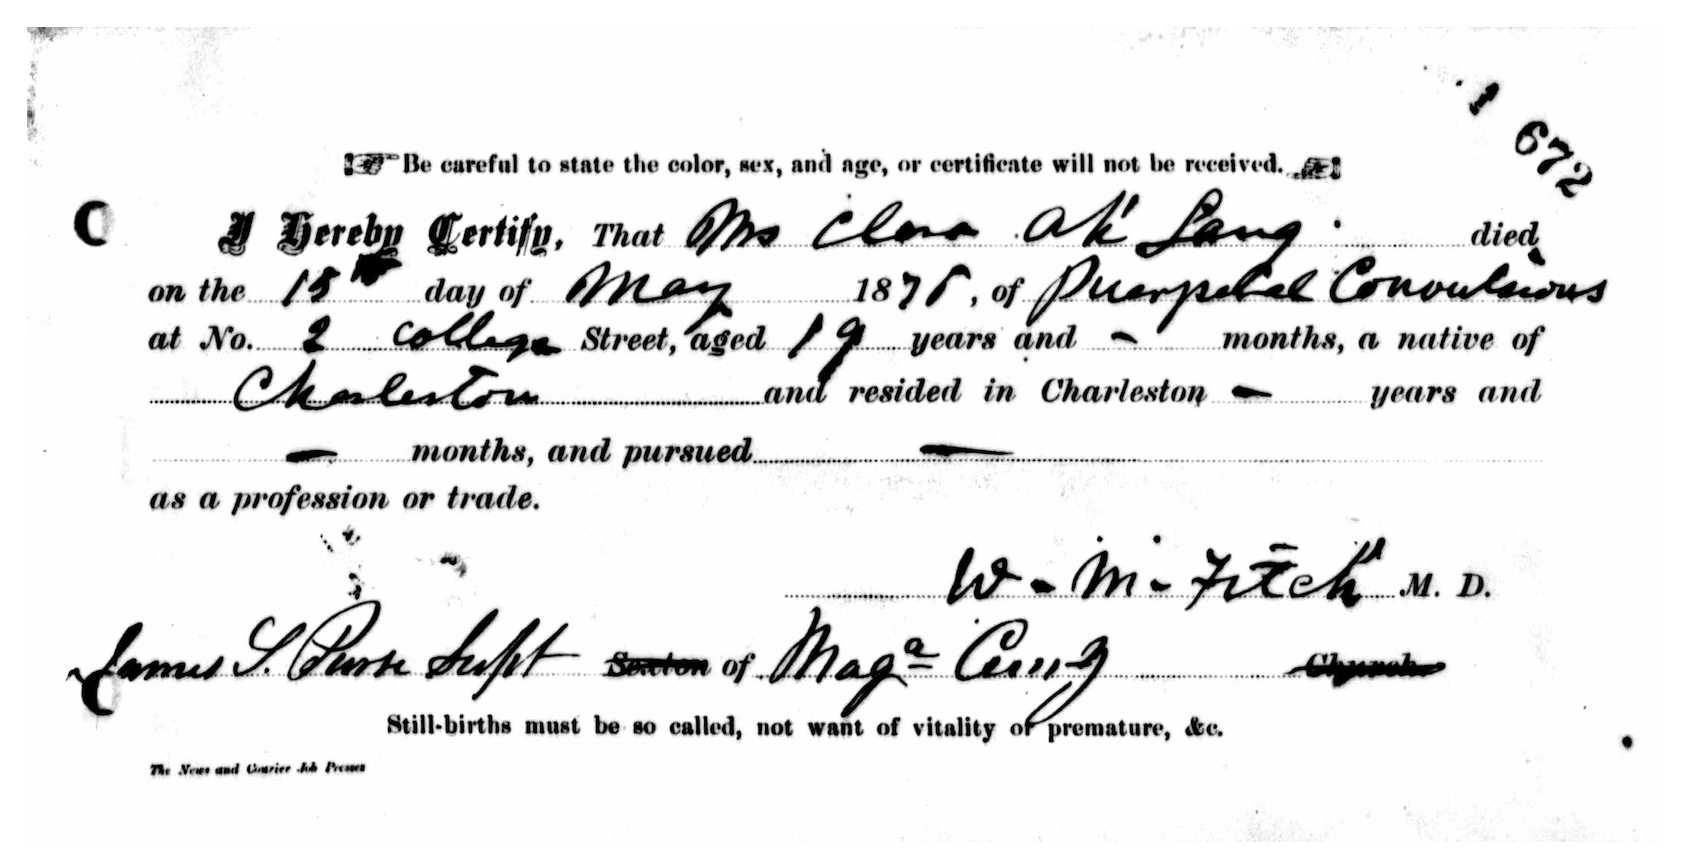 1 672
Be careful to state the color, sex, and age, or certificate will not be received.
I Hereby Certify, That Mrs Clara Lang died
on the 15th day of May 187, of Puerperal Convulsions
at No. 2 College Street, aged 19 years and - months, a native of
Charleston and resided in Charleston - years and
- months, and pursued -
as a profession or trade.
W. M. Fitch M. D.
James S. Purse Supt Sexton of Maga Cemy Church
Still-births must be so called, not want of vitality or premature, &c.
The News and Courier Job Presses